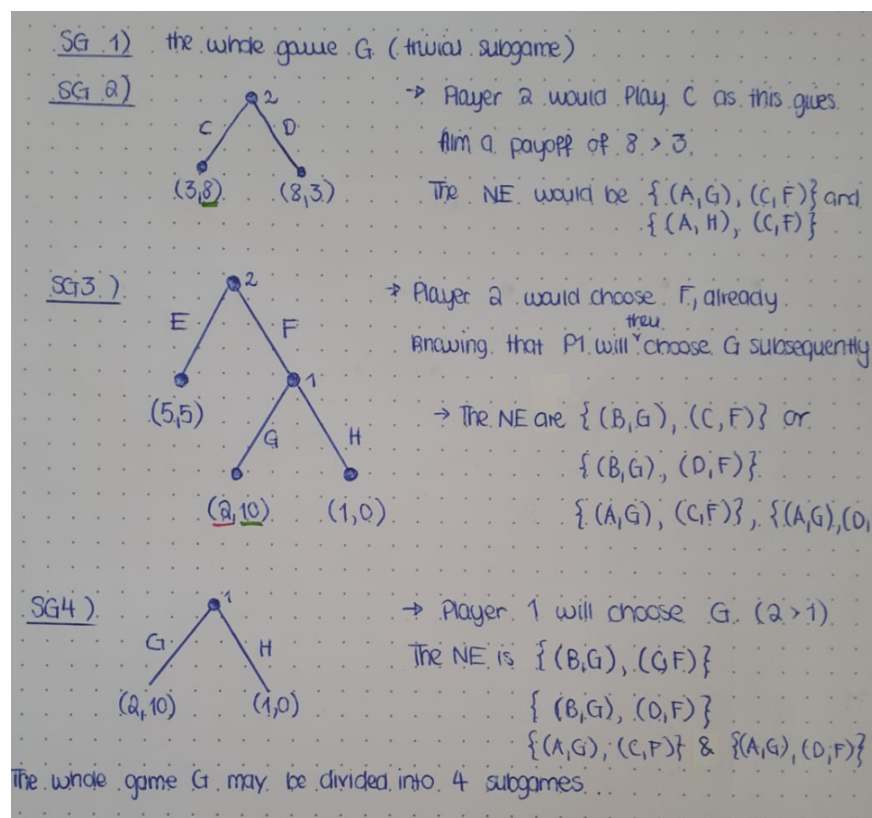 SG 1) the whole game G (trivial subgame)
SG 2)
2
→ Player 2 would Play C as this gives
C D
him a payoff of 8 > 3.
(3,8) (8,3)
The NE would be {(A,G), (C,F)} and
{(A,H), (C,F)}
SG3)
2
→ Player 2 would choose F, already
E F
then
knowing that P1 will ˅ choose G subsequently
1
(5,5)
→ The NE are {(B,G), (C,F)} or
G H
{(B,G), (D,F)}
(2,10) (1,0)
{(A,G), (C,F)}, {(A,G),(D,
SG4)
1
→ Player 1 will choose G. (2>1)
G H
The NE is {(B,G), (C,F)}
(2,10) (1,0)
{(B,G), (D,F)}
{(A,G), (C,F)} & {(A,G), (D,F)}
The whole game G may be divided into 4 subgames.